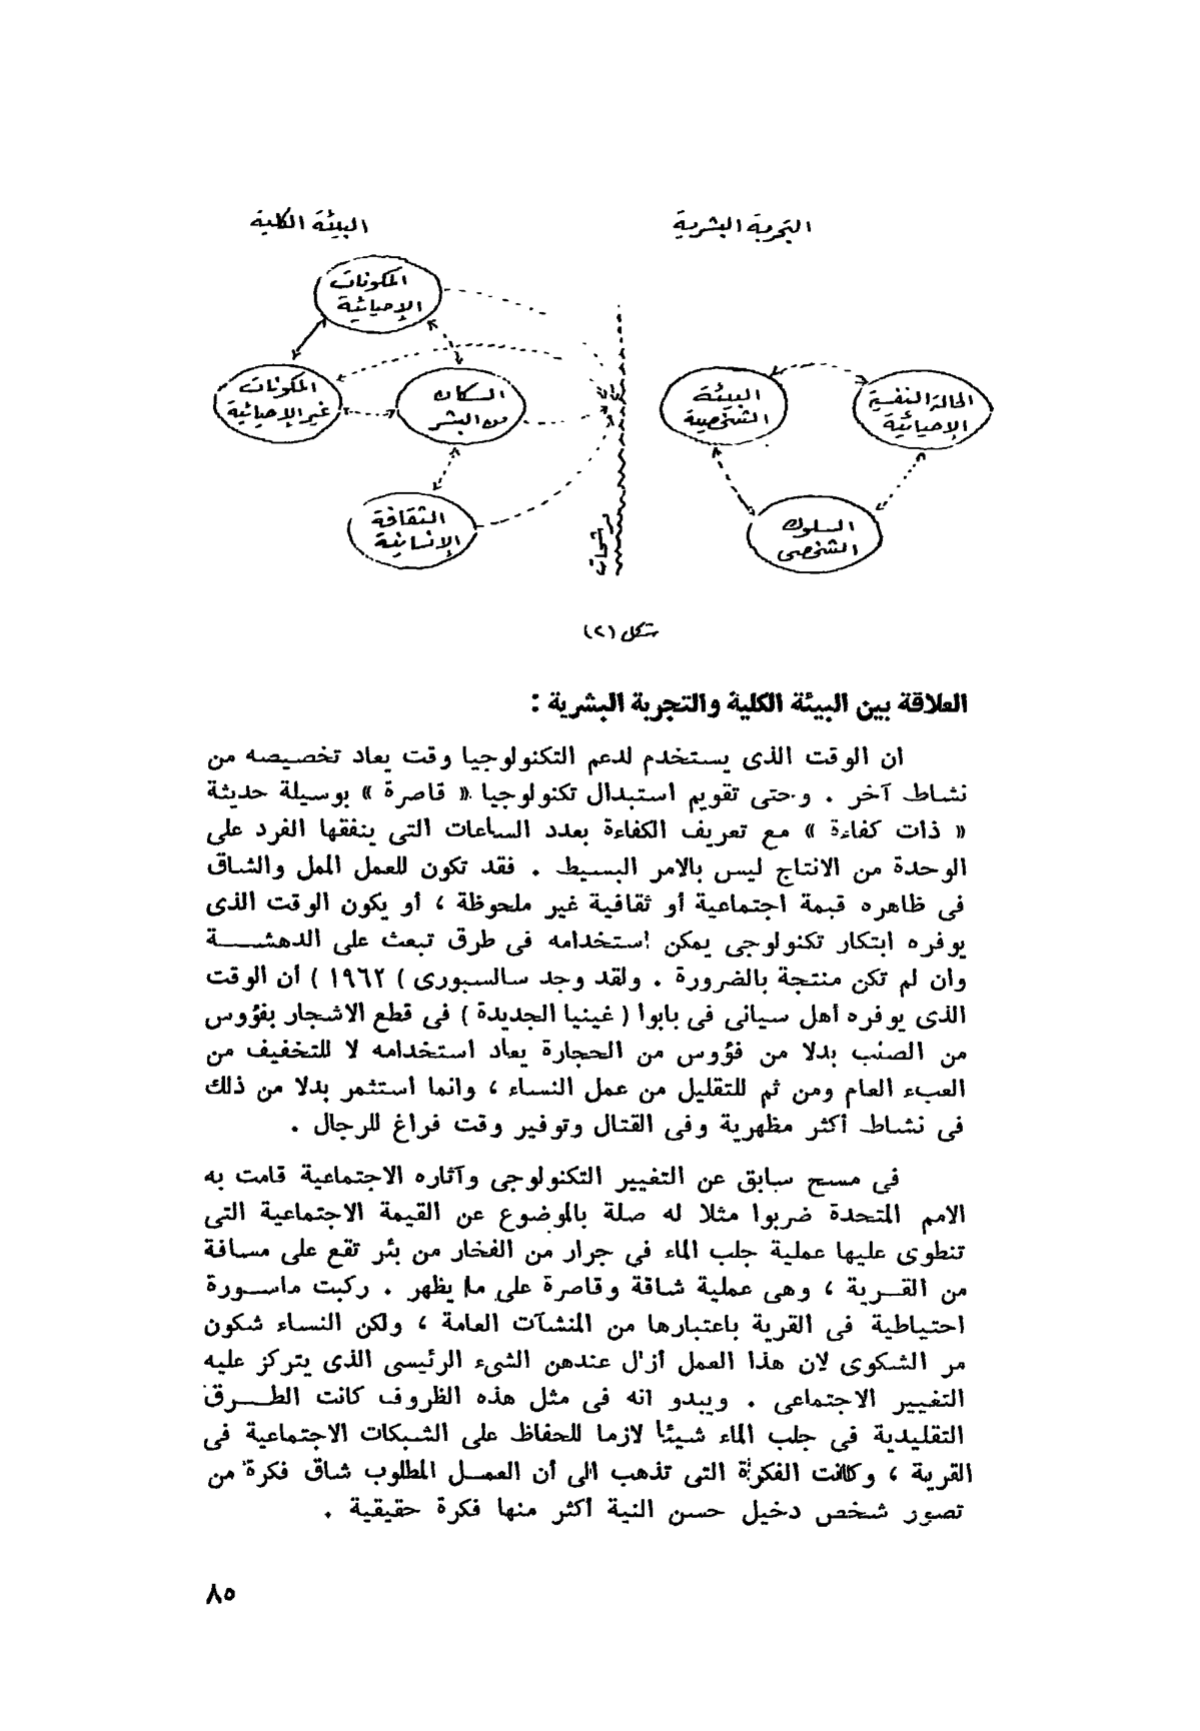 التجربة البشرية
البيئة الكلية
المكونات
الإحيائية
المكونات
غير الإحيائية
السكان
من البشر
الثقافة
الإنسانية
مرشحات
البيئة
الشخصية
الحالة النفسية
الإحيائية
السلوك
الشخصى
شكل (٢)
العلاقة بين البيئة الكلية والتجربة البشرية :
ان الوقت الذى يستخدم لدعم التكنولوجيا وقت يعاد تخصيصه من
نشاط آخر . وحتى تقويم استبدال تكنولوجيا « قاصرة » بوسيلة حديثة
« ذات كفاءة » مع تعريف الكفاءة بعدد الساعات التى ينفقها الفرد على
الوحدة من الانتاج ليس بالامر البسيط . فقد تكون للعمل الممل والشاق
فى ظاهره قيمة اجتماعية أو ثقافية غير ملحوظة ، أو يكون الوقت الذى
يوفره ابتكار تكنولوجى يمكن استخدامه فى طرق تبعث على الدهشــة
وان لم تكن منتجة بالضرورة . ولقد وجد سالسبورى ) ١٩٦٢ ) أن الوقت
الذى يوفره أهل سيانى فى بابوا ( غينيا الجديدة ) فى قطع الاشجار بفؤوس
من الصلب بدلا من فؤوس من الحجارة يعاد استخدامه لا للتخفيف من
العبء العام ومن ثم للتقليل من عمل النساء ، وانما استثمر بدلا من ذلك
فى نشاط أكثر مظهرية وفى القتال وتوفير وقت فراغ للرجال .
فى مسح سابق عن التغيير التكنولوجى وآثاره الاجتماعية قامت به
الامم المتحدة ضربوا مثلا له صلة بالموضوع عن القيمة الاجتماعية التى
تنطوى عليها عملية جلب الماء فى جرار من الفخار من بئر تقع على مسافة
من القــرية ، وهى عملية شاقة وقاصرة على ما يظهر . ركبت ماســورة
احتياطية فى القرية باعتبارها من المنشآت العامة ، ولكن النساء شكون
مر الشكوى لان هذا العمل أزال عندهن الشىء الرئيسى الذى يتركز عليه
التغيير الاجتماعى . ويبدو انه فى مثل هذه الظروف كانت الطــرق
التقليدية فى جلب الماء شيئا لازما للحفاظ على الشبكات الاجتماعية فى
القرية ، وكانت الفكرة التى تذهب الى أن العمــل المطلوب شاق فكرة من
تصور شخص دخيل حسن النية أكثر منها فكرة حقيقية .
٨٥